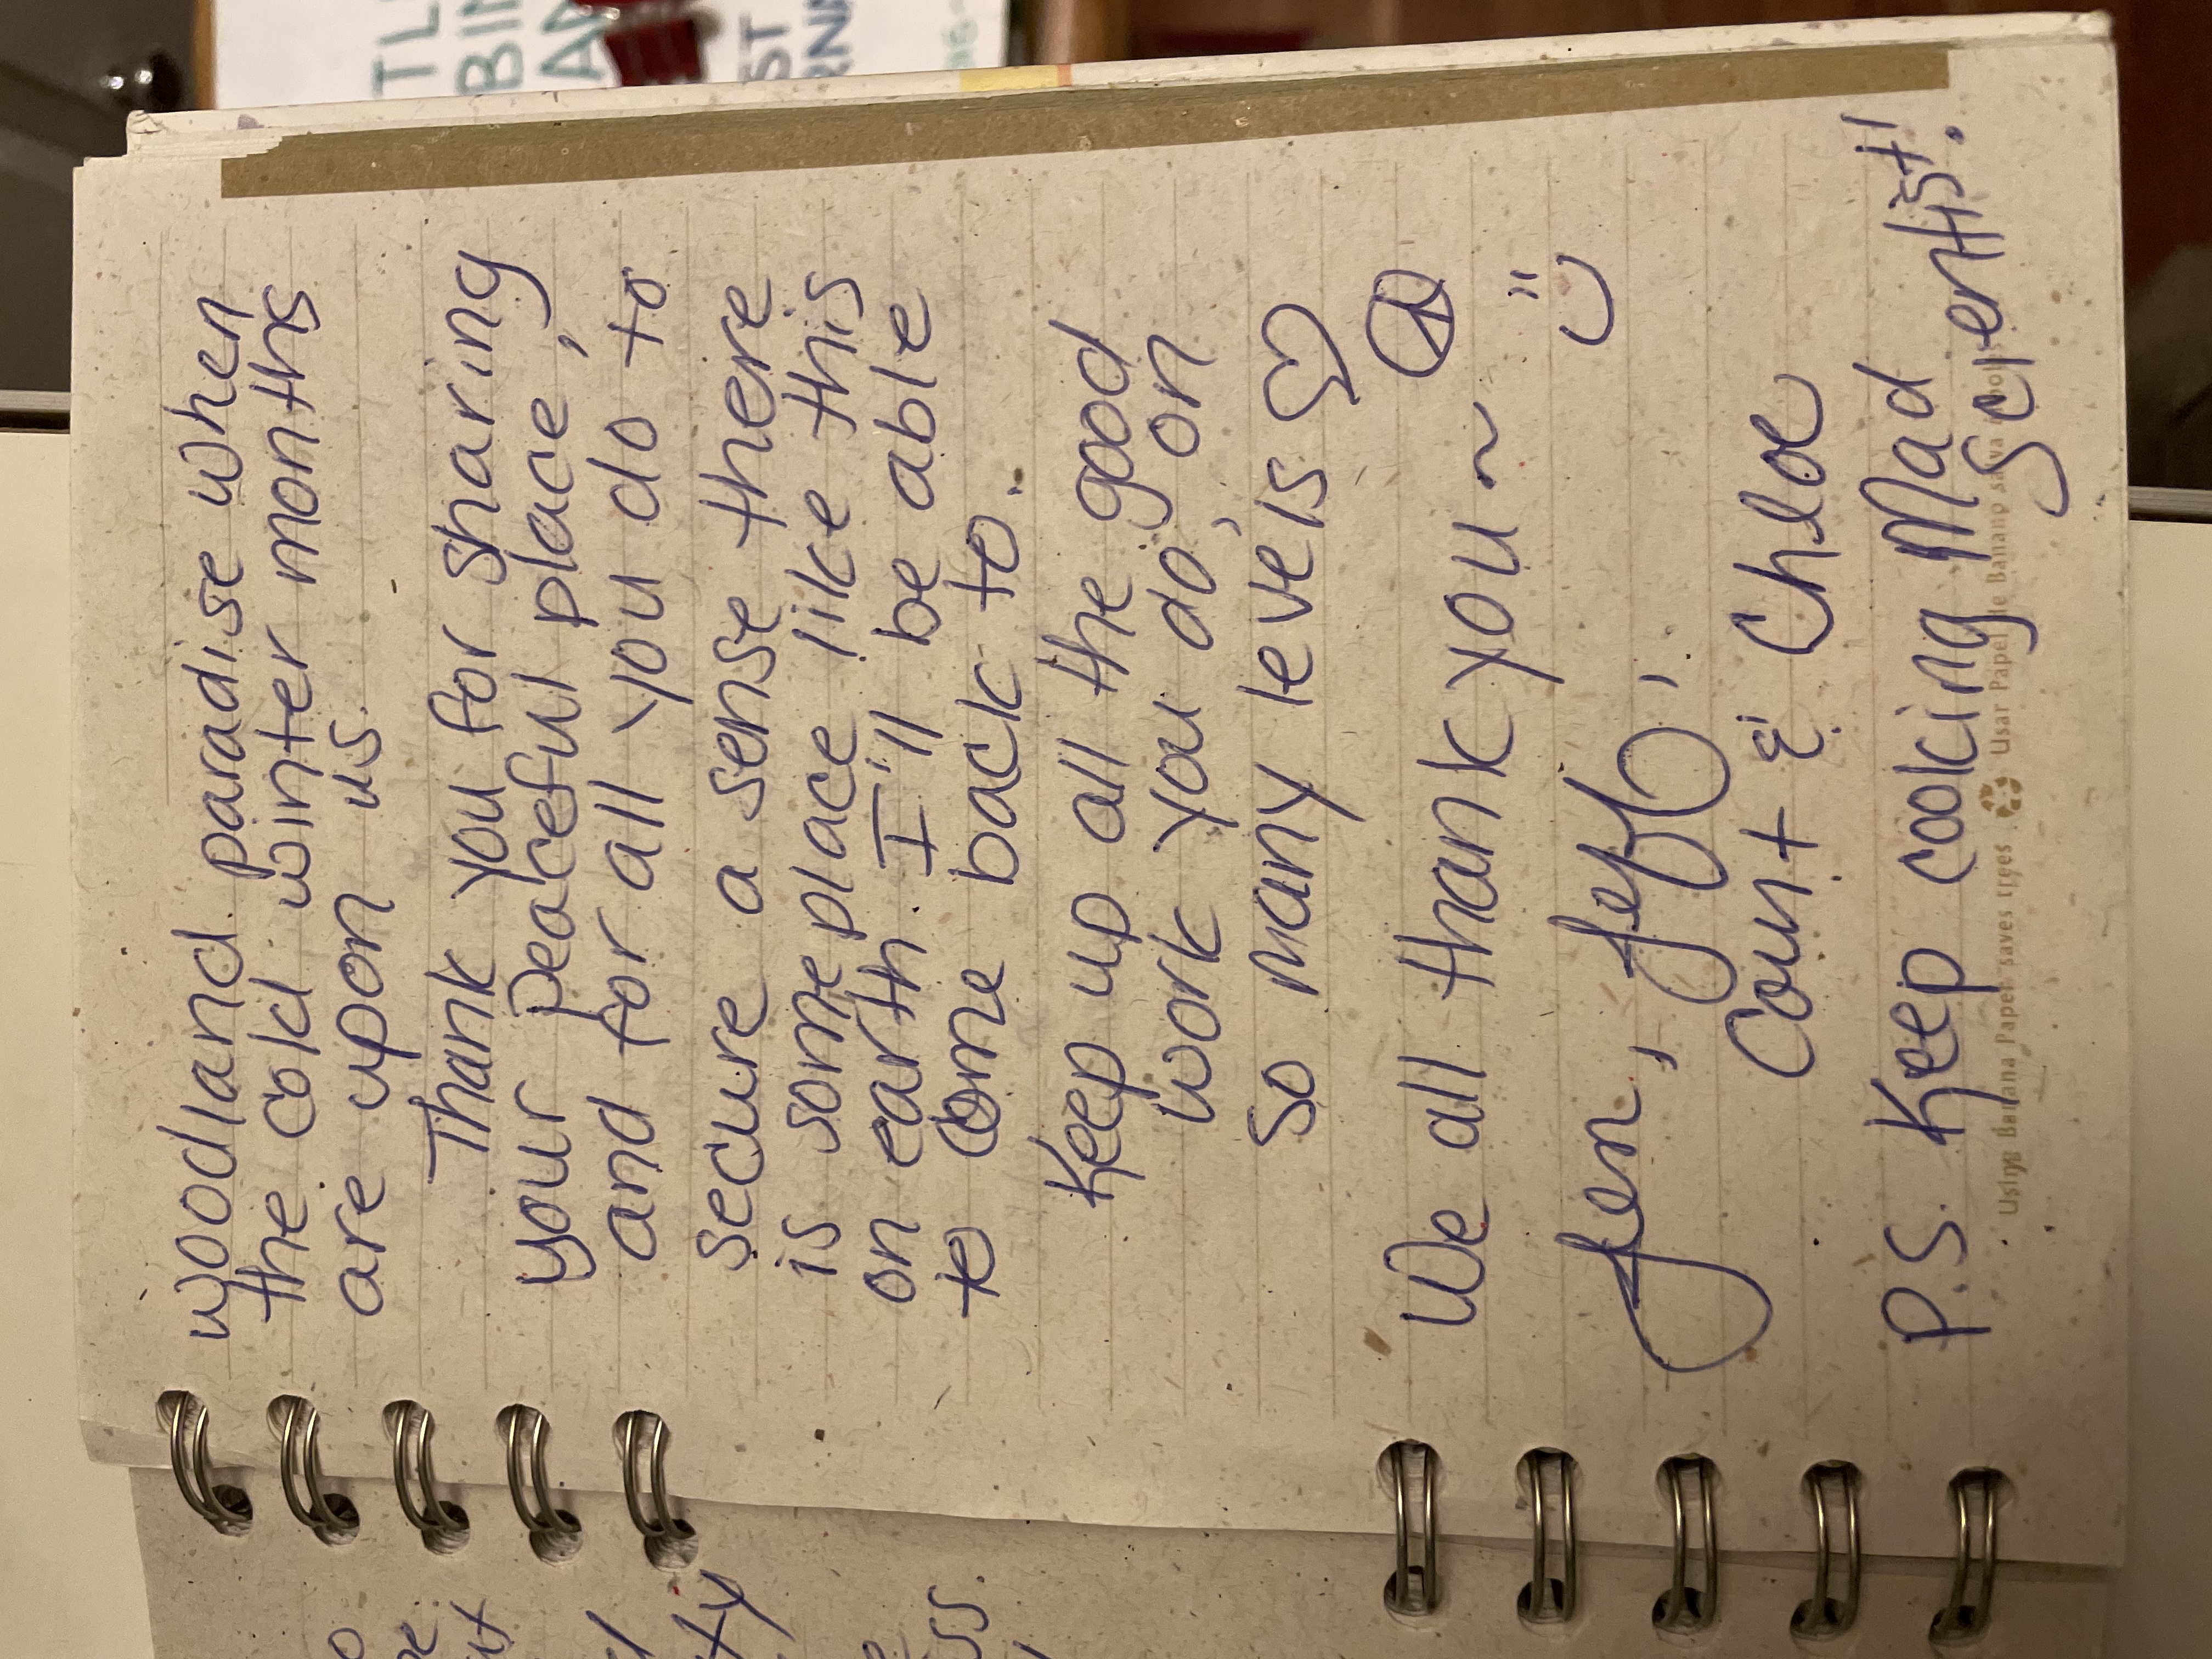 woodland paradise when
the cold winter months
are upon us.
Thank you for sharing
your peaceful place,
and for all you do to
secure a sense there
is someplace like this
on earth I'll be able
to come back to.
Keep up all the good
work you do, on
so many levels
We all thank you ~
Jen, Jeff,
Count & Chloe
P.S. Keep cooking Mad
Scientist!
Using Banana Paper saves trees Usar Papel de Banano salva